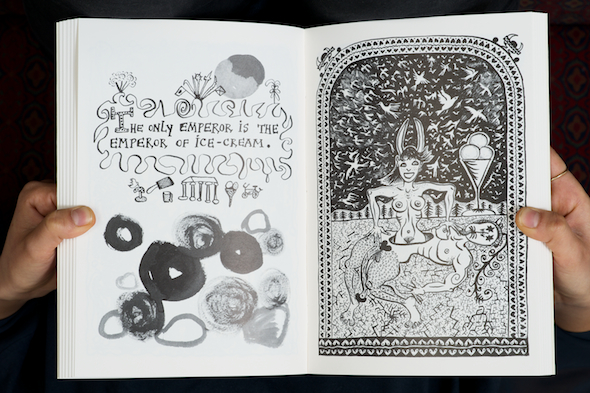 THE ONLY EMPEROR IS THE
EMPEROR OF ICE-CREAM.